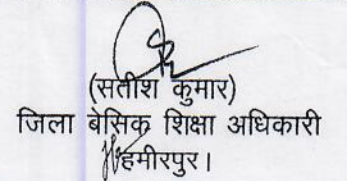 (सतीश कुमार)
जिला बेसिक शिक्षा अधिकारी
हमीरपुर।